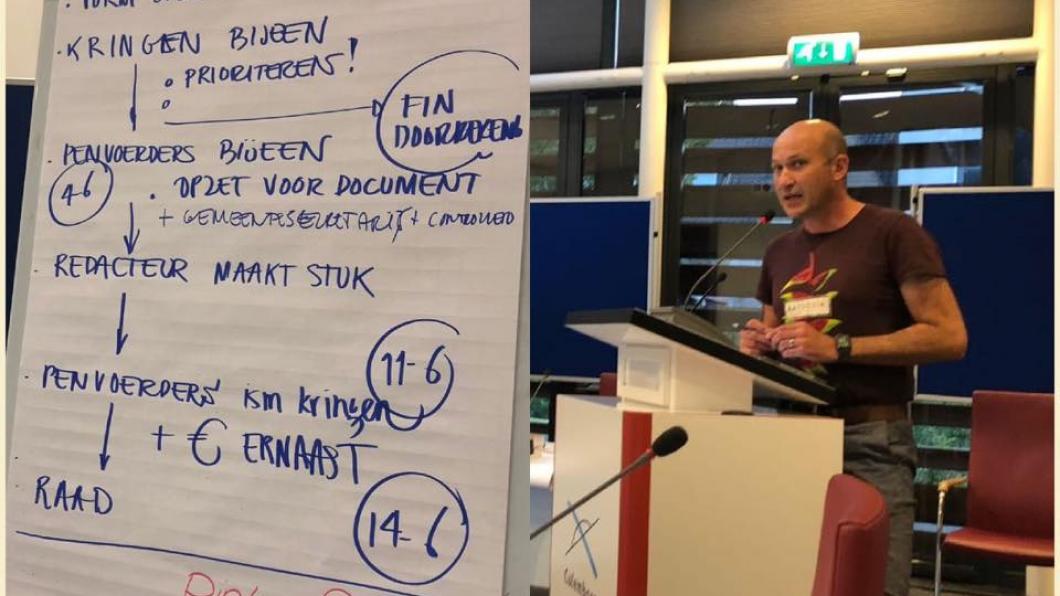 · KRINGEN BIJEEN
° PRIORITEREN!
°
FIN
DOORREKENEN
· PENVOERDERS BIJEEN
4-6
· OPZET VOOR DOCUMENT
+ GEMEENTESECRETARIS + CONTROLLER
· REDACTEUR MAAKT STUK
11-6
· PENVOERDERS ism kringen
+ € ERNAAST
RAAD
14-6